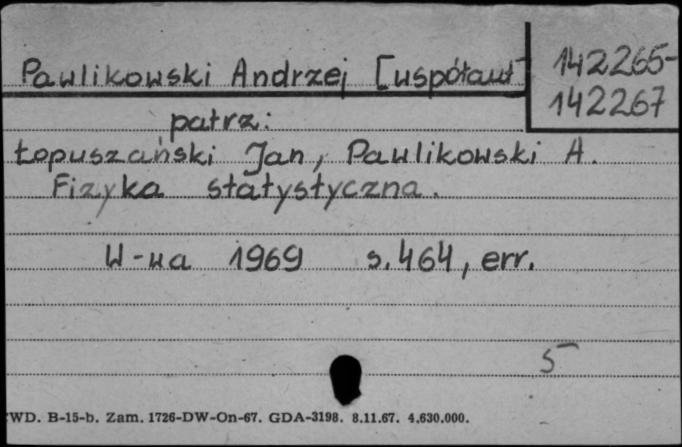 Pawlikowski Andrzej [współaut]
142265-
142267
patrz:
Łopuszański Jan, Pawlikowski A.
Fizyka statystyczna.
W-wa 1969 s. 464, err.
5
WD. B-15-b. Zam. 1726-DW-On-67. GDA-3198. 8.11.67. 4.630.000.